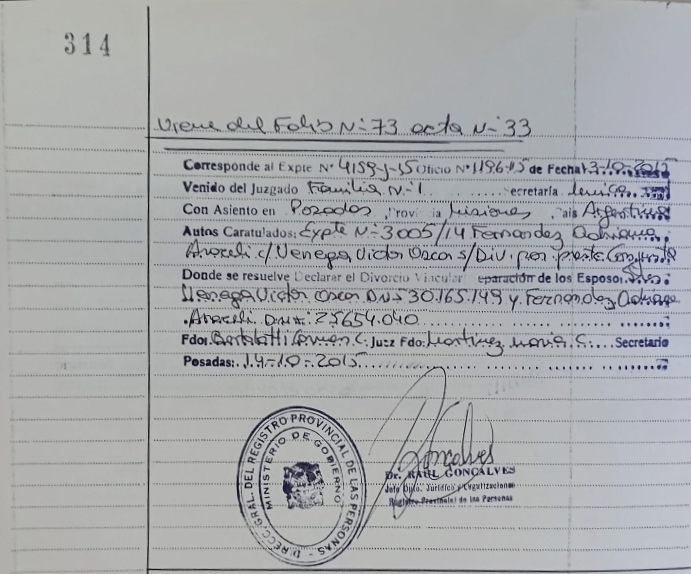 314
Viene del Folio N-73 acta N-33
Corresponde al Expte Nº 4159-J-15 Oficio Nº 1196-15 de Fecha 13-10-2015
Venido del Juzgado Familia N-1 ecretaría única
Con Asiento en Posadas Provi ia Misiones aís Argentina
Autos Caratulados: Expte N-3005/14 Fernandez Adriana
Araceli c/ Venega Victor Oscar s/ Div. por pres Conjunta
Donde se resuelve Declarar el Divorcio Vincular eparación de los Esposos
Venega Victor Oscar DNI 30.165.149 y Fernandez Adriana
Araceli DNI: 25654.040
Fdo: Bertolatti Carmen C. Juez Fdo: Martinez Maria C. Secretario
Posadas: 14-10-2015
DIRECC. GRAL. DEL REGISTRO PROVINCIAL DE LAS PERSONAS
MINISTERIO DE GOBIERNO
Goncalves
Dr. RAUL GONCALVES
Jefe Dpto. Jurídico y Legalizaciones
Registro Provincial de las Personas